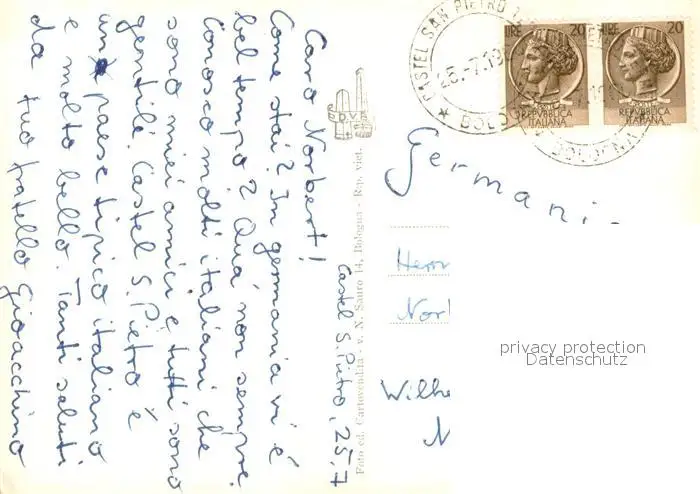 Castel S. Pietro, 25.7
Caro Norbert!
Come stai? In germania vi é
bel tempo? Quá non sempre.
Conosco molti italiani che
sono miei amici e tutti sono
gentili. Castel S. Pietro é
un paese tipico italiano
e molto bello. Tanti saluti
da tuo fratello Gioacchino
D.V.F.
Foto ed. Cartovendita - v. N. Sauro 14, Bologna - Rip. viet.
CASTEL SAN PIETRO
25.-7.19
★ BOLOGNA
LIRE 20
REPVBBLICA
ITALIANA
LIRE 20
REPVBBLICA
ITALIANA
BOLOGNA
Germani-
Herr
Nor
Wilhe
N
privacy protection
Datenschutz